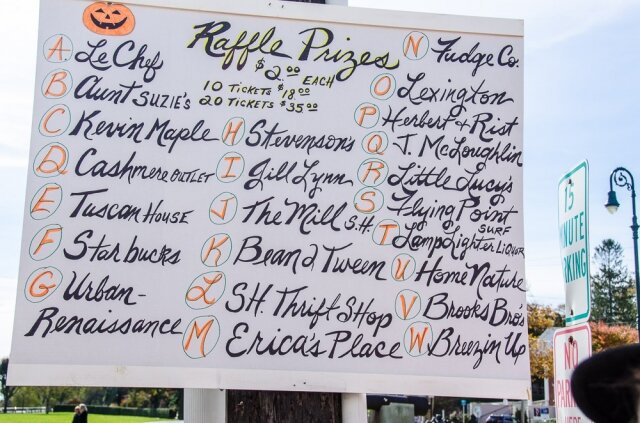 Raffle Prizes
$2.00 EACH
10 TICKETS $18.00
20 TICKETS $35.00
A. Le Chef
B Aunt SUZIE'S
C Kevin Maple
D Cashmere OUTLET
E Tuscan HOUSE
F Starbucks
G Urban-
Renaissance
H Stevenson's
I Jill Lynn
J The Mill S.H.
K Bean 2 Tween
L SH. Thrift Shop
M Erica's Place
N Fudge Co.
O Lexington
P Herbert & Rist
Q J. McLoughlin
R Little Lucy's
S Flying Point
SURF
T LampLighter LIQUOR
U Home Nature
V Brooks Bro's
W Breezin Up
15
MINUTE
PARKING
NO
PARKING
HERE